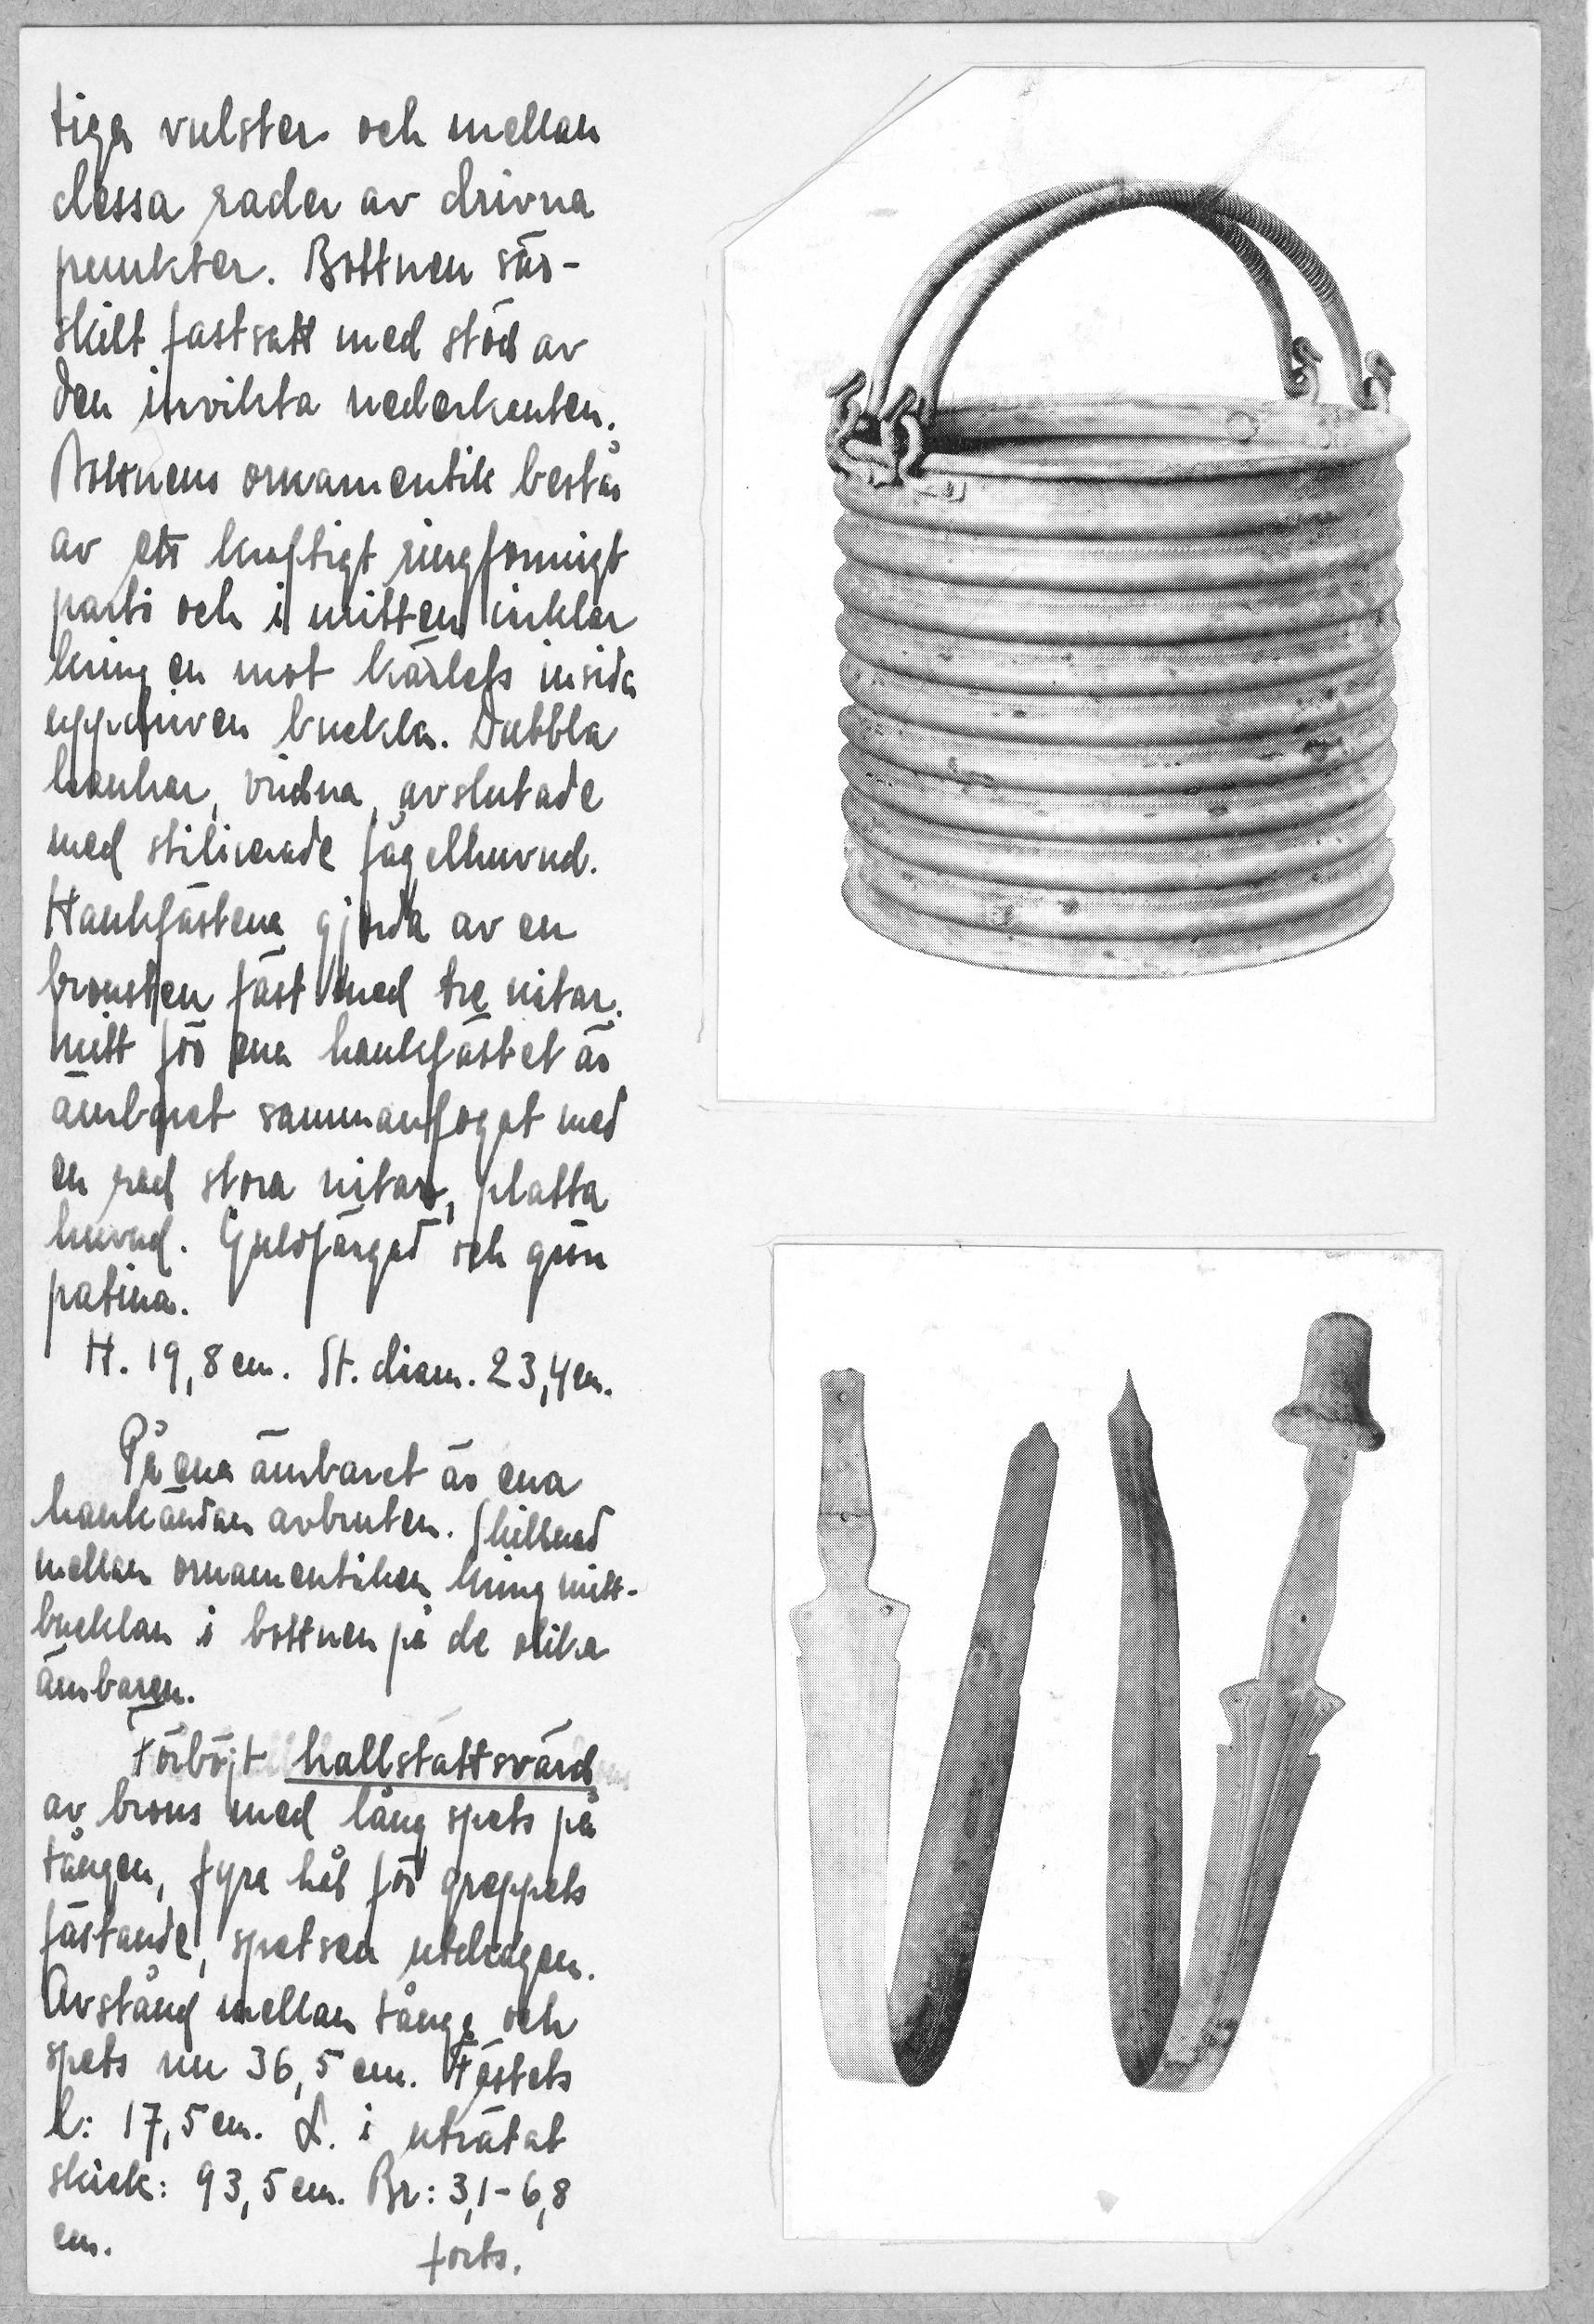 tiga vulster och mellan
dessa rader av drivna
punkter. Bottnen sär-
skilt fastsatt med stöd av
den invikta nederkanten.
Bottnens ornamentik består
av ett kraftigt ringformigt
parti och i mitten cirklar
kring en mot kärlets insida
uppdriven buckla. Dubbla
hankar, vridna, avslutade
med stiliserade fågelhuvud.
Hankfästena gjorda av en
bronsten fäst med tre nitar.
Mitt för ena hankfästet är
ämbaret sammanfogat med
en rad stora nitar, platta
huvud. Guldfärgad och grön
patina.
H. 19,8 cm. St. diam. 23,4 cm.
På ena ämbaret är ena
hankändan avbruten. Skillnad
mellan ornamentiken kring mitt-
bucklan i bottnen på de olika
ämbaren.
Förböjt hallstattsvärd
av brons med lång spets på
tången, fyra hål för greppets
fästande, spetsen utdragen.
Avstånd mellan tånge och
spets nu 36,5 cm. Fästets
l: 17,5 cm. L. i uträtat
skick: 93,5 cm. Br: 3,1-6,8
cm.
forts.